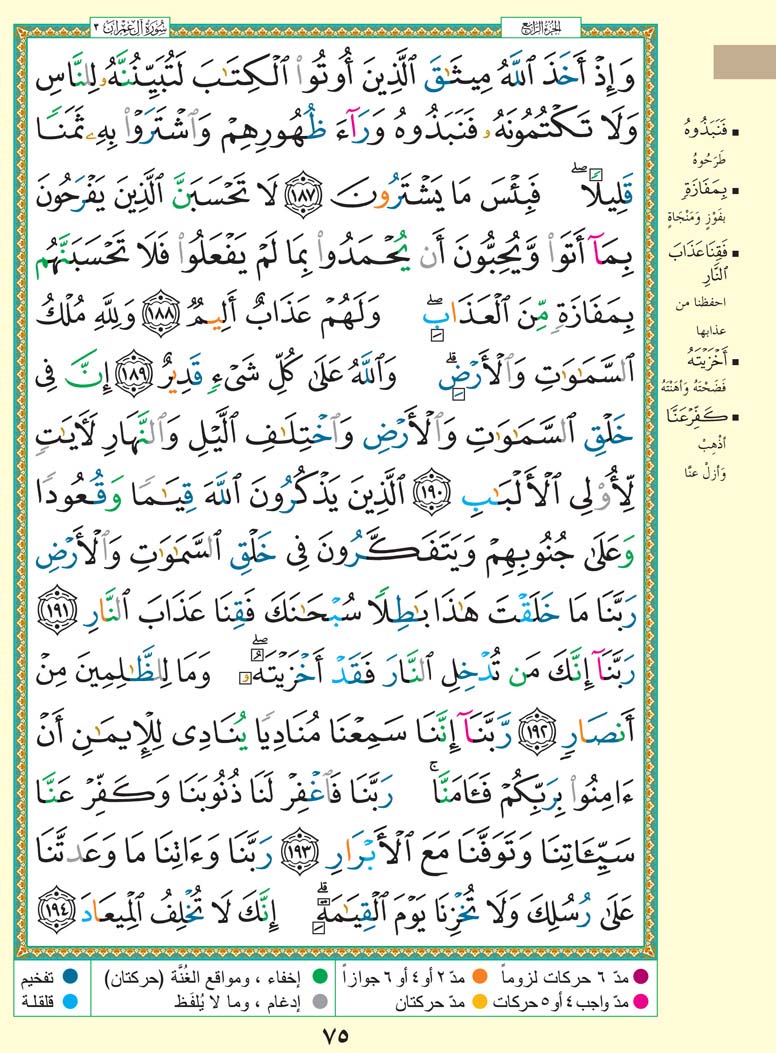 سُورَةُ آلِ عِمْرَان ٣
الجُزءُ الرَّابِع
وَإِذْ أَخَذَ ٱللَّهُ مِيثَٰقَ ٱلَّذِينَ أُوتُوا۟ ٱلْكِتَٰبَ لَتُبَيِّنُنَّهُۥ لِلنَّاسِ
وَلَا تَكْتُمُونَهُۥ فَنَبَذُوهُ وَرَآءَ ظُهُورِهِمْ وَٱشْتَرَوْا۟ بِهِۦ ثَمَنًا
قَلِيلًا ۖ فَبِئْسَ مَا يَشْتَرُونَ ١٨٧ لَا تَحْسَبَنَّ ٱلَّذِينَ يَفْرَحُونَ
بِمَآ أَتَوا۟ وَّيُحِبُّونَ أَن يُحْمَدُوا۟ بِمَا لَمْ يَفْعَلُوا۟ فَلَا تَحْسَبَنَّهُم
بِمَفَازَةٍ مِّنَ ٱلْعَذَابِ ۖ وَلَهُمْ عَذَابٌ أَلِيمٌ ١٨٨ وَلِلَّهِ مُلْكُ
ٱلسَّمَٰوَٰتِ وَٱلْأَرْضِ ۗ وَٱللَّهُ عَلَىٰ كُلِّ شَىْءٍ قَدِيرٌ ١٨٩ إِنَّ فِى
خَلْقِ ٱلسَّمَٰوَٰتِ وَٱلْأَرْضِ وَٱخْتِلَٰفِ ٱلَّيْلِ وَٱلنَّهَارِ لَءَايَٰتٍ
لِّأُو۟لِى ٱلْأَلْبَٰبِ ١٩٠ ٱلَّذِينَ يَذْكُرُونَ ٱللَّهَ قِيَٰمًا وَقُعُودًا
وَعَلَىٰ جُنُوبِهِمْ وَيَتَفَكَّرُونَ فِى خَلْقِ ٱلسَّمَٰوَٰتِ وَٱلْأَرْضِ
رَبَّنَا مَا خَلَقْتَ هَٰذَا بَٰطِلًا سُبْحَٰنَكَ فَقِنَا عَذَابَ ٱلنَّارِ ١٩١
رَبَّنَآ إِنَّكَ مَن تُدْخِلِ ٱلنَّارَ فَقَدْ أَخْزَيْتَهُۥ ۖ وَمَا لِلظَّٰلِمِينَ مِنْ
أَنصَارٍ ١٩٢ رَّبَّنَآ إِنَّنَا سَمِعْنَا مُنَادِيًا يُنَادِى لِلْإِيمَٰنِ أَنْ
ءَامِنُوا۟ بِرَبِّكُمْ فَـَٔامَنَّا ۚ رَبَّنَا فَٱغْفِرْ لَنَا ذُنُوبَنَا وَكَفِّرْ عَنَّا
سَيِّـَٔاتِنَا وَتَوَفَّنَا مَعَ ٱلْأَبْرَارِ ١٩٣ رَبَّنَا وَءَاتِنَا مَا وَعَدتَّنَا
عَلَىٰ رُسُلِكَ وَلَا تُخْزِنَا يَوْمَ ٱلْقِيَٰمَةِ ۗ إِنَّكَ لَا تُخْلِفُ ٱلْمِيعَادَ ١٩٤
▪ فَنَبَذُوهُ
طَرَحُوهُ
▪ بِمَفَازَةٍ
بفَوْزٍ وَمَنْجَاةٍ
▪ فَقِنَا عَذَابَ
ٱلنَّارِ
احفظنا من
عذابها
▪ أَخْزَيْتَهُ
فَضَحْتَهُ وَأهَنْتَهُ
▪ كَفِّرْ عَنَّا
أذْهِبْ
وَأزِلْ عنّا
مدّ ٦ حركات لزوماً ● مدّ ٢ أو ٤ أو ٦ جوازاً ● إخفاء ، ومواقع الغُنَّة (حركتان) ● تفخيم
مدّ واجب ٤ أو ٥ حركات ● مدّ حركتان ● إدغام ، وما لا يُلفَظ ● قلقلة
٧٥